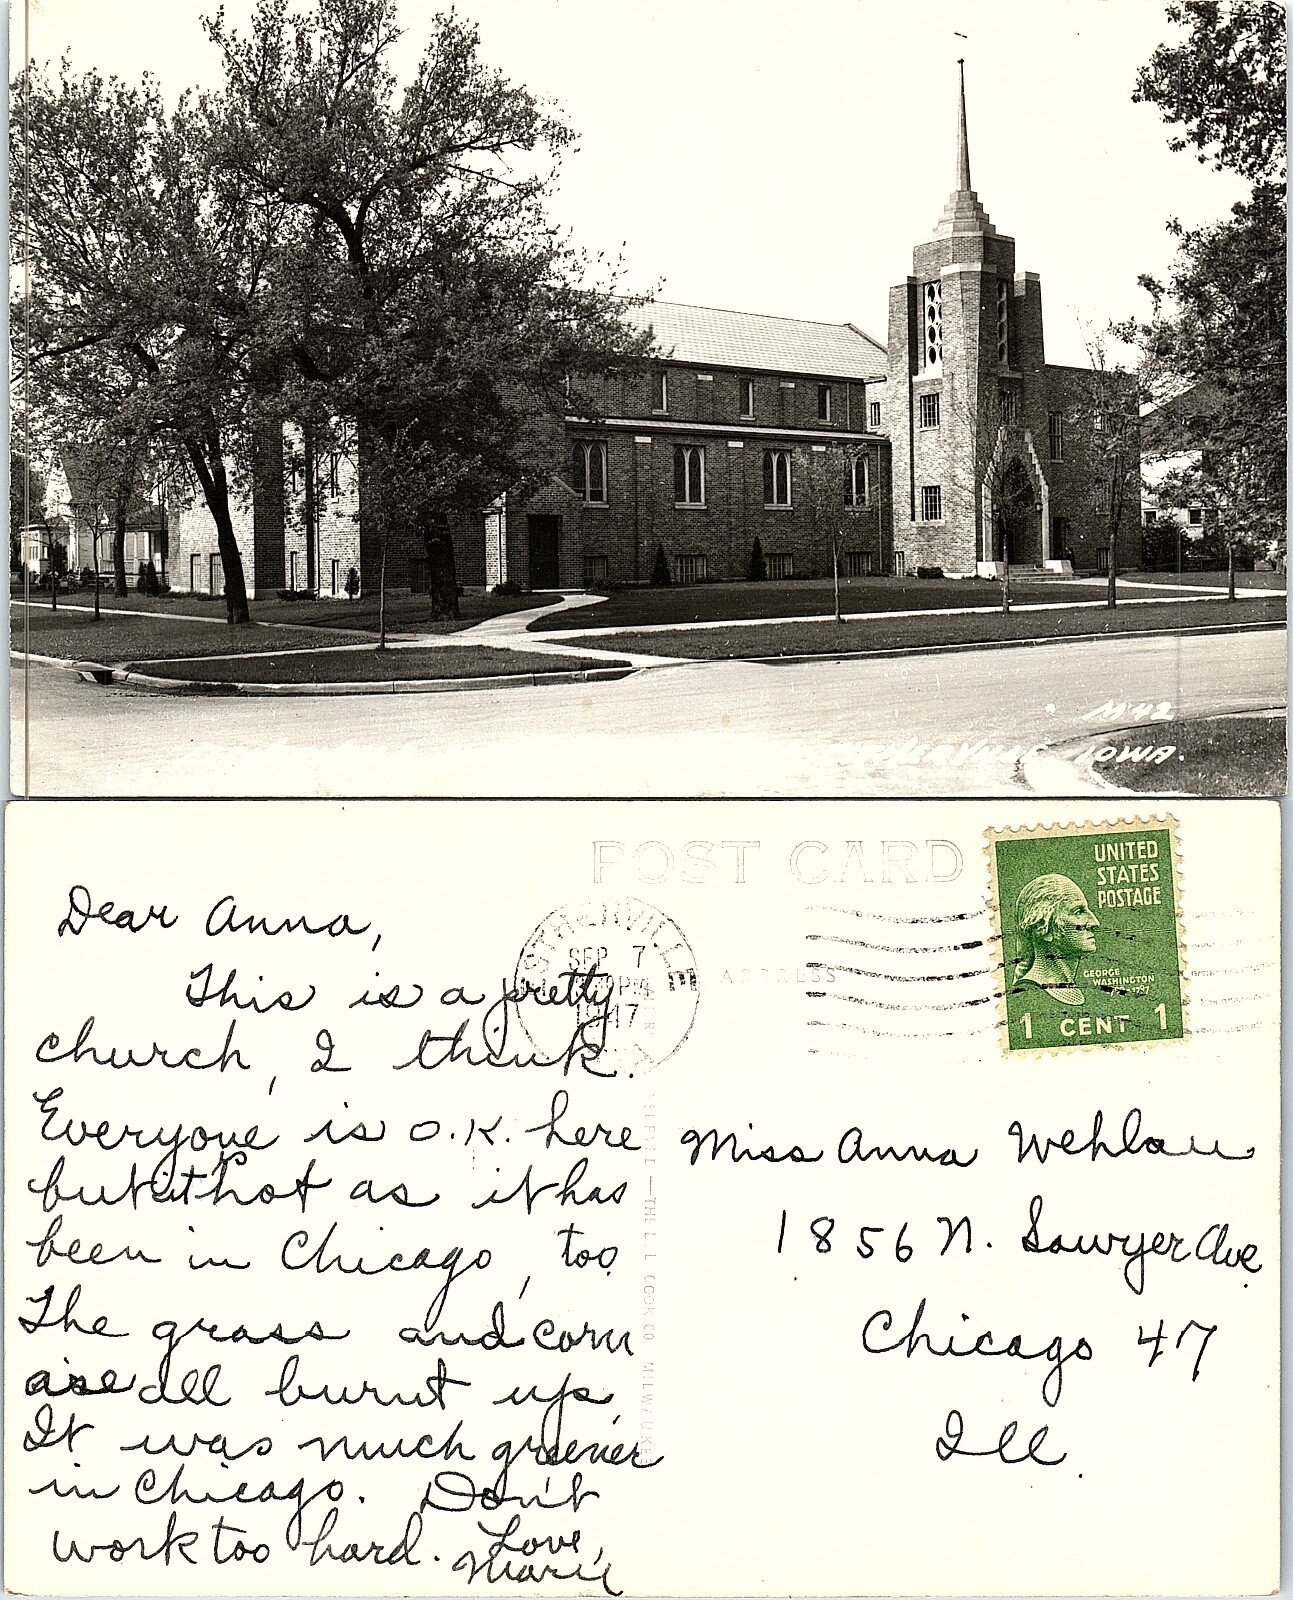 M 42
IOWA.
POST CARD
UNITED
STATES
POSTAGE
GEORGE
WASHINGTON
1 CENT 1
ESTHERVILLE
SEP 7
PM
1947
ADDRESS
Dear Anna,
This is a pretty
church, I think.
Everyone is O.K. here
but it hot as it has
been in Chicago, too.
The grass and corn
are all burnt up.
It was much greener
in Chicago. Don't
work too hard.
Love,
Marie
THE L. L. COOK CO. MILWAUKEE
Miss Anna Wehlau
1856 N. Sawyer Ave.
Chicago 47
Ill.